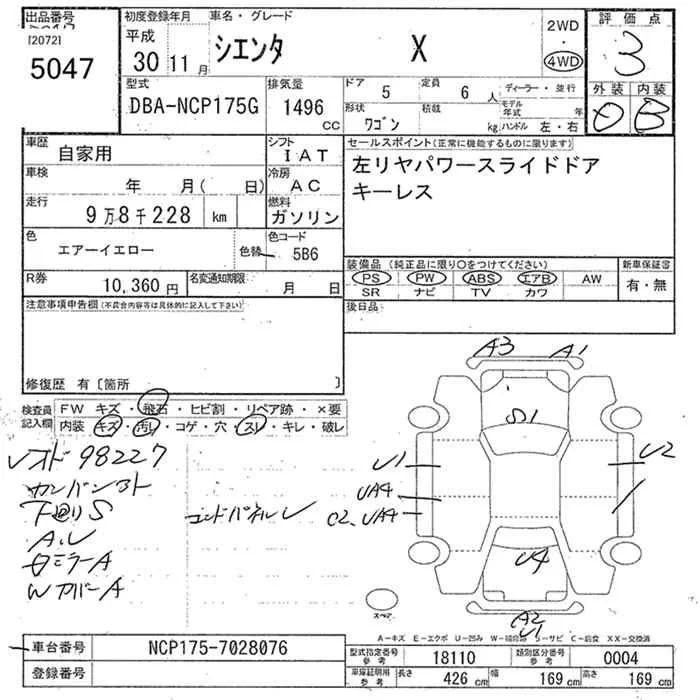 出品番号
[2072]
5047
初度登録年月
平成
30 11 月
車名・グレード
シエンタ X
2WD
・
4WD
評価点
3
外装 内装
D B
型式
DBA-NCP175G
排気量
1496
CC
ドア 5
定員 6 人
形状 ワゴン
積載 kg
ディーラー・並行
モデル年式 年
ハンドル 左・右
車歴
自家用
車検
年 月( 日)
走行
9万8千228 km
色
エアーイエロー
色替
シフト
IAT
冷房
AC
燃料
ガソリン
色コード
5B6
R券
10,360 円
名変通知期限
月 日
セールスポイント(正常に機能するものに限ります)
左リヤパワースライドドア
キーレス
装備品(純正品に限り○をつけてください)
PS PW ABS エアB AW
SR ナビ TV カワ
新車保証書
有・無
後日品
注意事項申告欄(不具合内容等は具体的に記入して下さい)
修復歴 有〔箇所 〕
検査員記入欄
FW キズ・飛石・ヒビ割・リペア跡・×要
内装 キズ・汚レ・コゲ・穴・スレ・キレ・破レ
98227
下廻りS
A,U
ミラーA
WカバーA
エンドパネルU
A3 A1
S1
U1
UA4
UA4
U2
U4
A2
U1
スペア
A-キズ E-エクボ U-凹み W-補修跡 S-サビ C-腐食 XX-交換済
車台番号
NCP175-7028076
登録番号
型式指定番号
参考
18110
類別区分番号
参考
0004
車庫証明用
参考
長さ 426 cm
幅 169 cm
高さ 169 cm